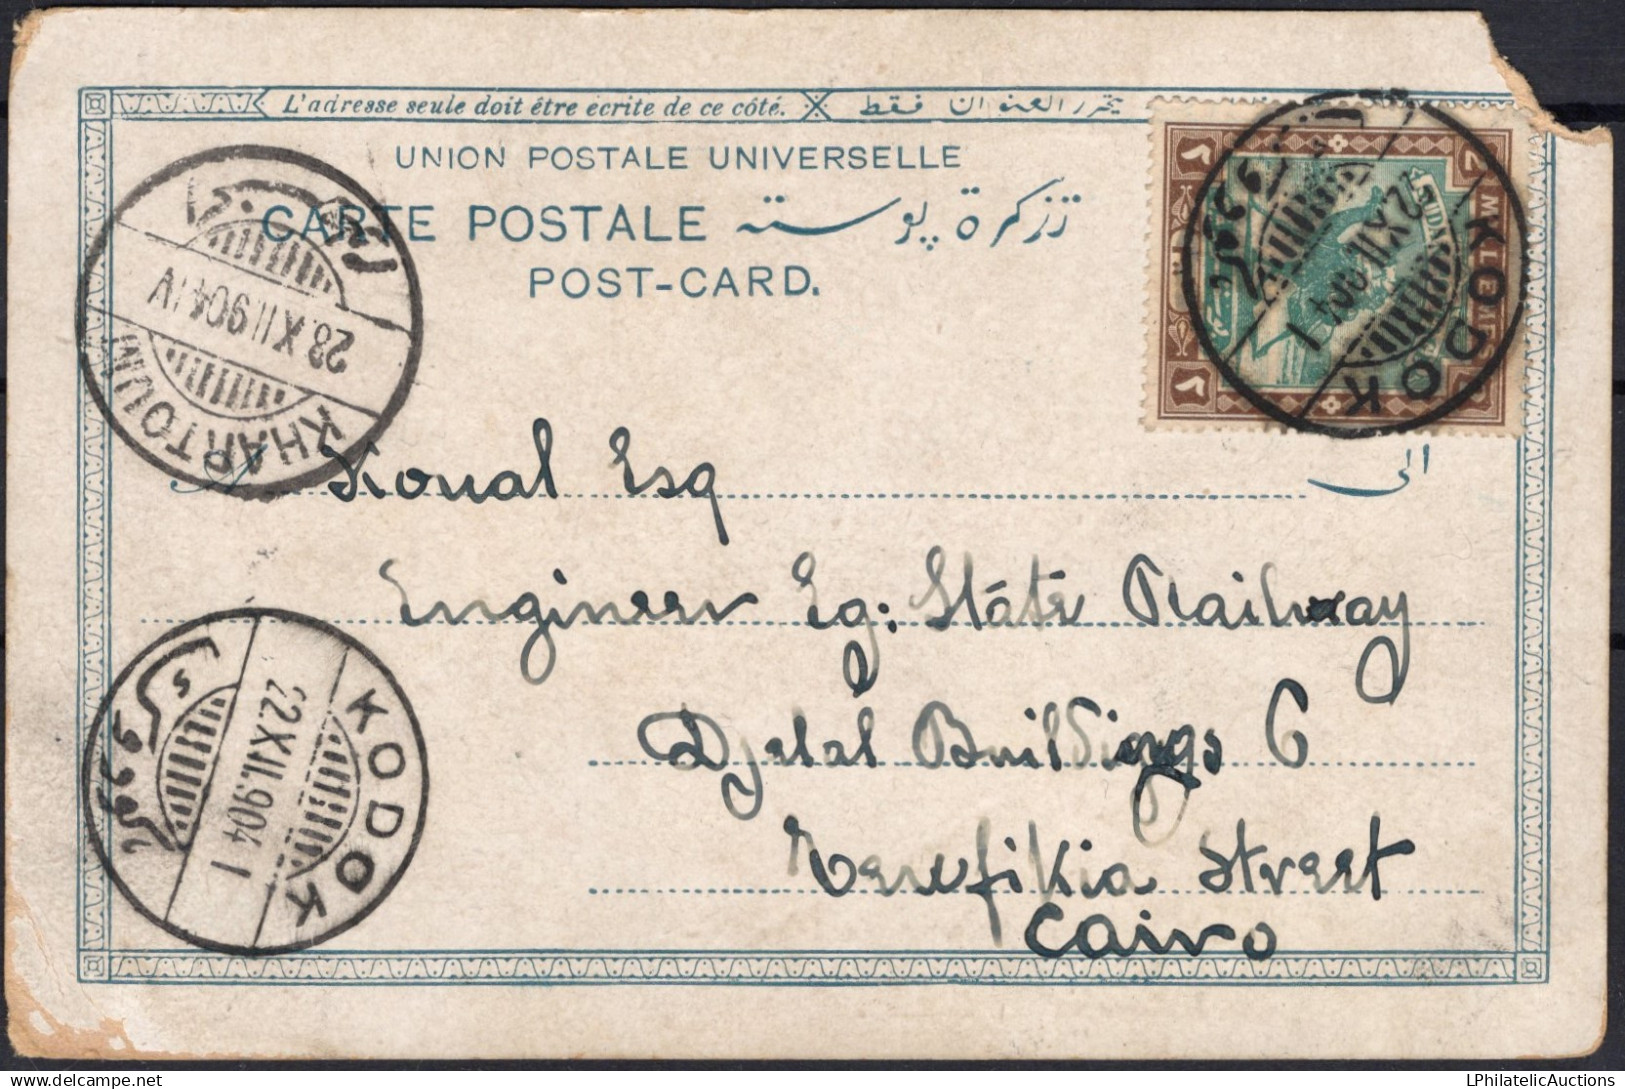 L'adresse seule doit être écrite de ce côté. يحرر العنوان فقط
UNION POSTALE UNIVERSELLE
CARTE POSTALE تذكرة پوسته
POST-CARD.
KHARTOUM
28.XII.904.IV
2 MILLIEMES
٢
KODOK
22.XII.904 1
الى
Esq
Engineer Eg: State Railway
Djelal Buildings 6
Tewfikia Street
Cairo
KODOK
22.XII.904 1
LPhilatelicAuctions